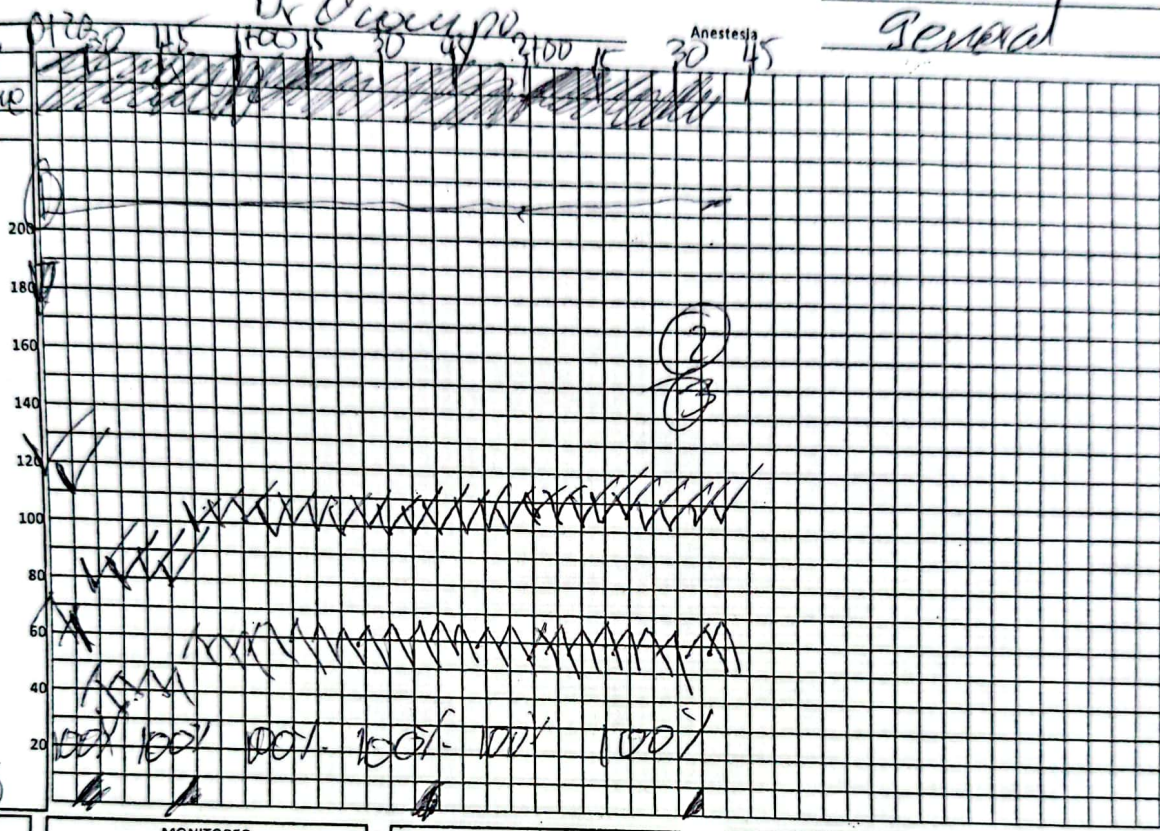 Dr Ocampo
Anestesia General
30 45 1+00 15 30 45 2+00 15 30 45
1
200
180
160
2
140
3
120
100
80
60
40
20 100% 100% 100% 100% 100% 100%
MONITOREO